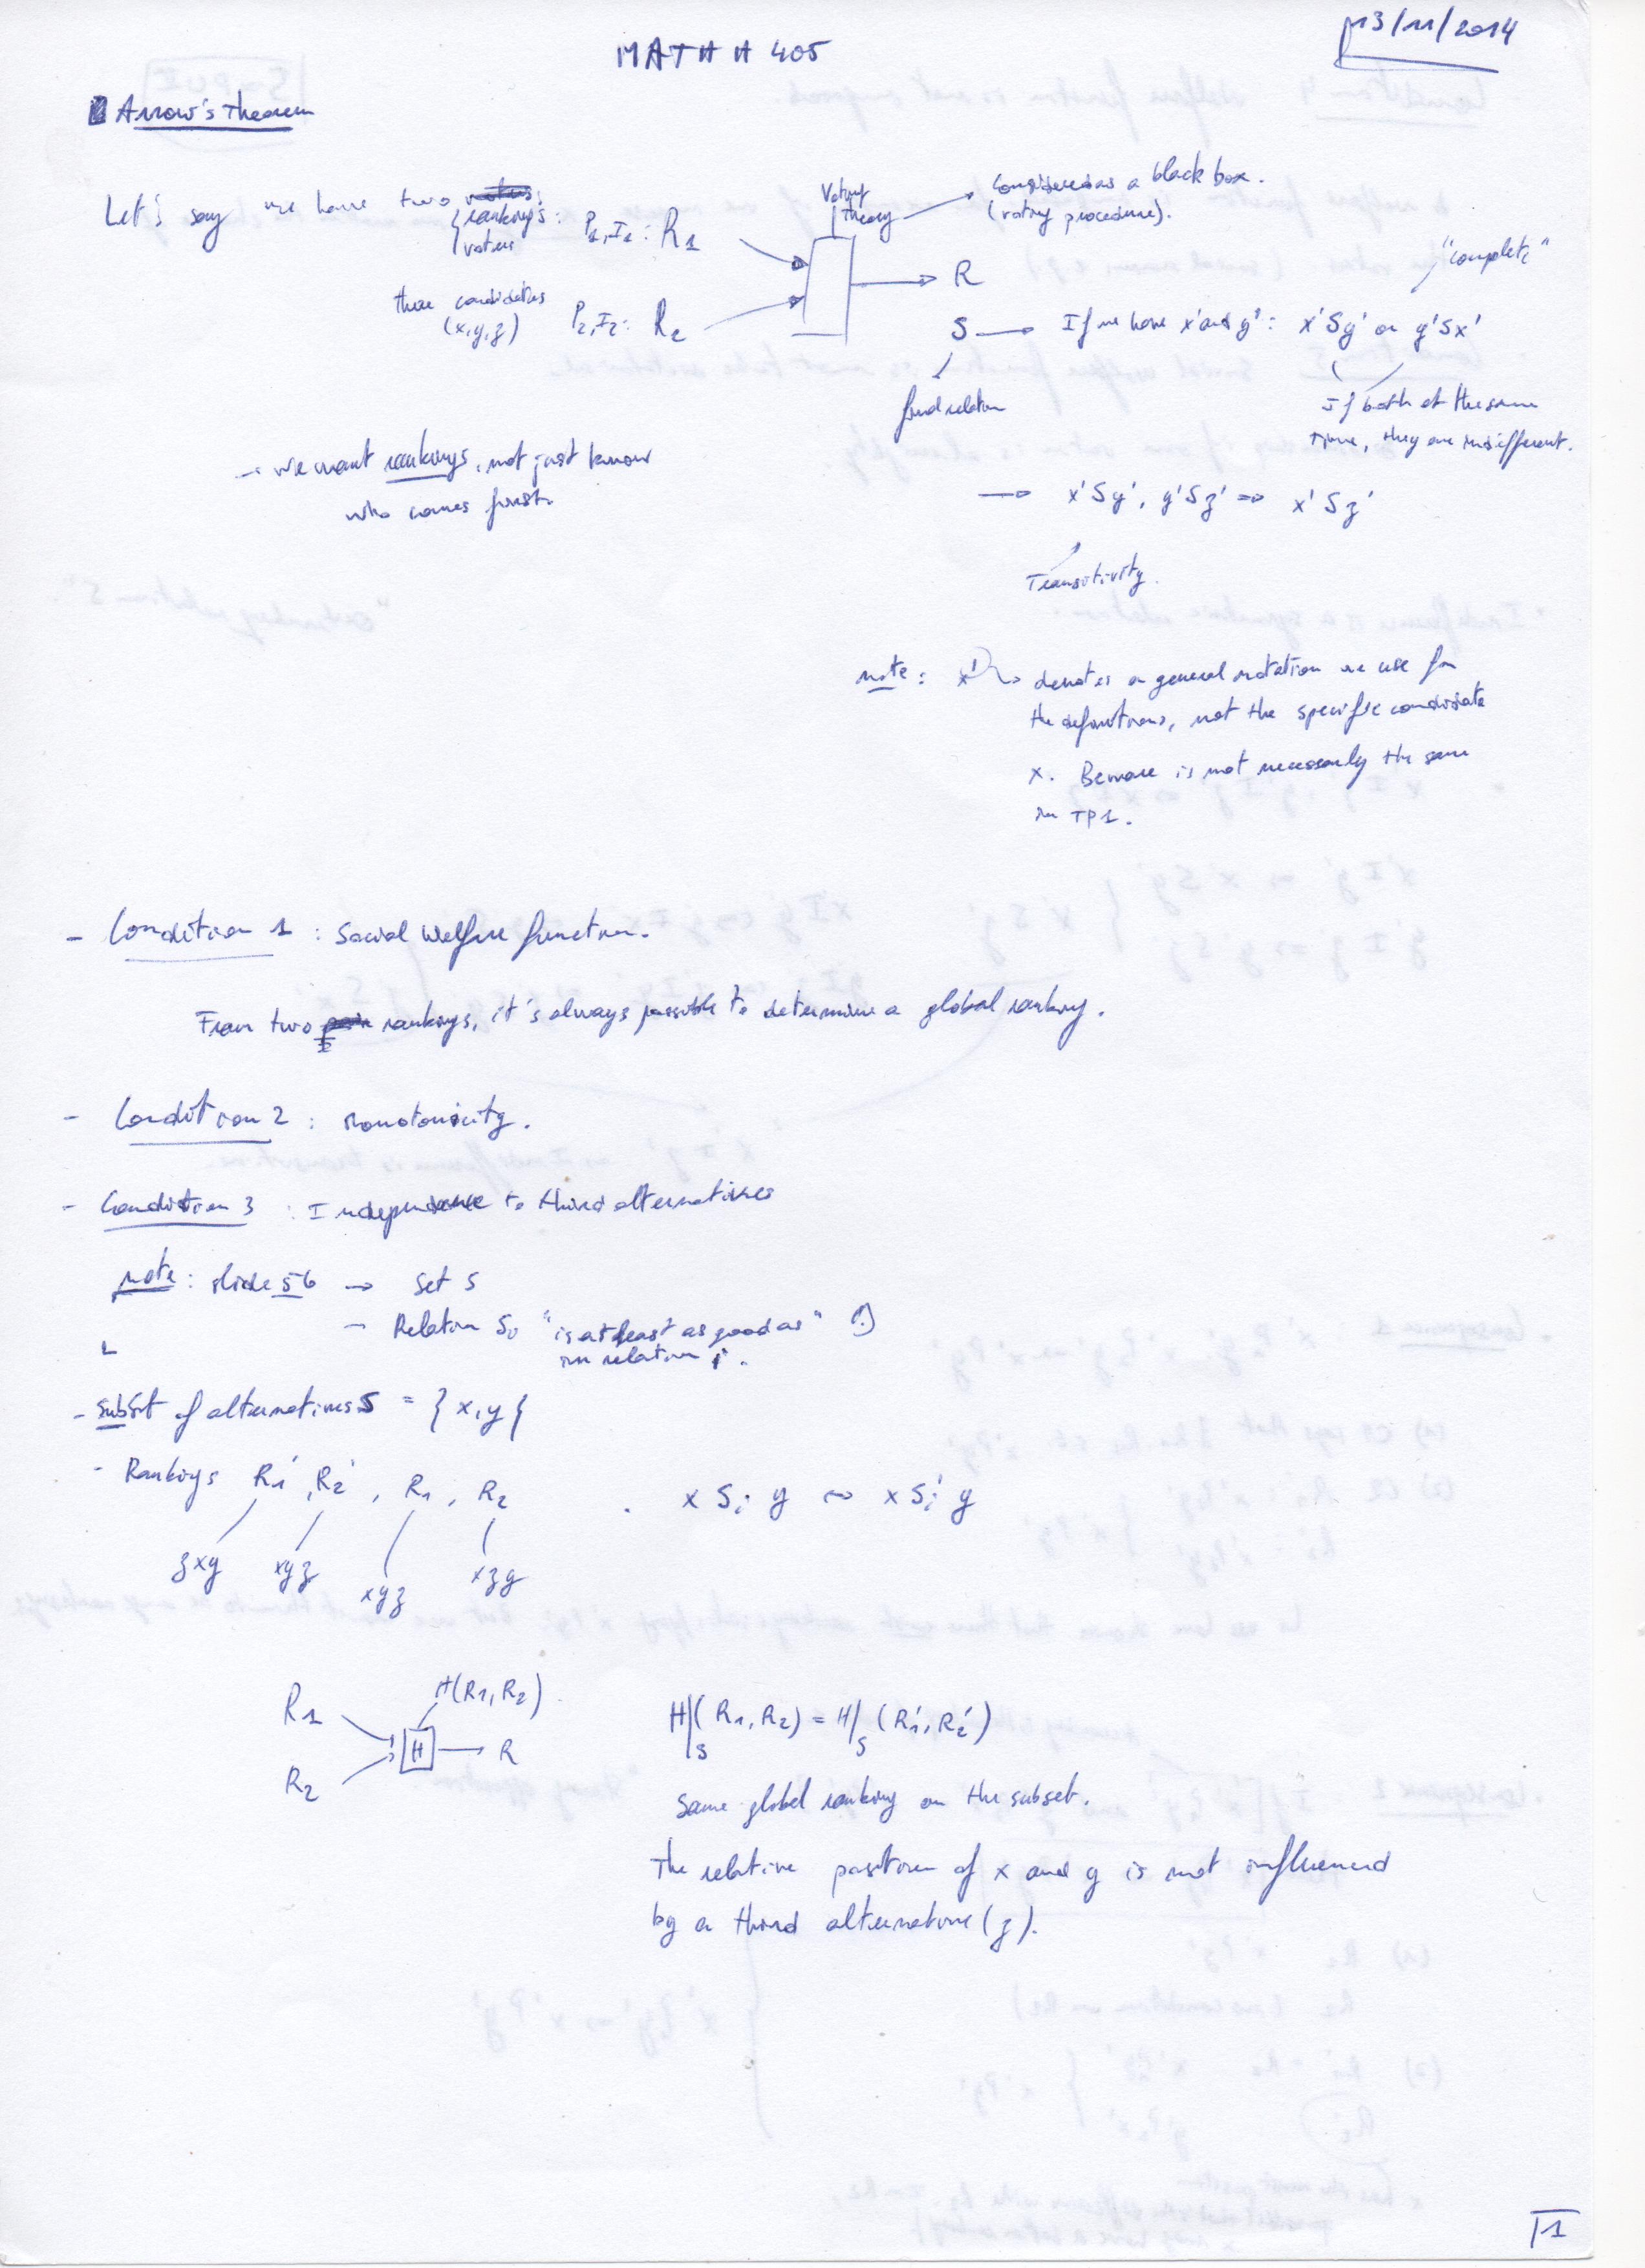 13/11/2014
MATH H 405
Arrow's Theorem
Let's say we have two
rankings :
voters
P1, I1 : R1
three candidates
(x,y,z)
P2, I2 : R2
Voting
theory
Considered as a black box.
(voting procedure).
R
"complete"
S → If we have x' and y' : x'Sy' or y'Sx'
final relation
If both at the same
time, they are indifferent.
→ x'Sy', y'Sz' => x'Sz'
Transitivity.
- We want rankings, not just know
who comes first.
note : x' → denotes a general notation we use for
the definitions, not the specific candidate
x. Beware is not necessarily the same
in TP1.
- Condition 1 : Social Welfare function.
From two rankings, it's always possible to determine a global ranking.
- Condition 2 : Monotonicity.
- Condition 3 : Independence to third alternatives
note : slide 56 → Set S
- Relation Si "is at least as good as"
in relation i.
- subset of alternatives S = {x,y}
- Rankings R1', R2', R1, R2 . x Si y <=> x Si' y
zxy xyz xyz xzy
R1
R2
H(R1,R2)
H → R
H|S (R1,R2) = H|S (R1',R2')
Same global ranking on the subset.
The relative position of x and y is not influenced
by a third alternative (z).
1